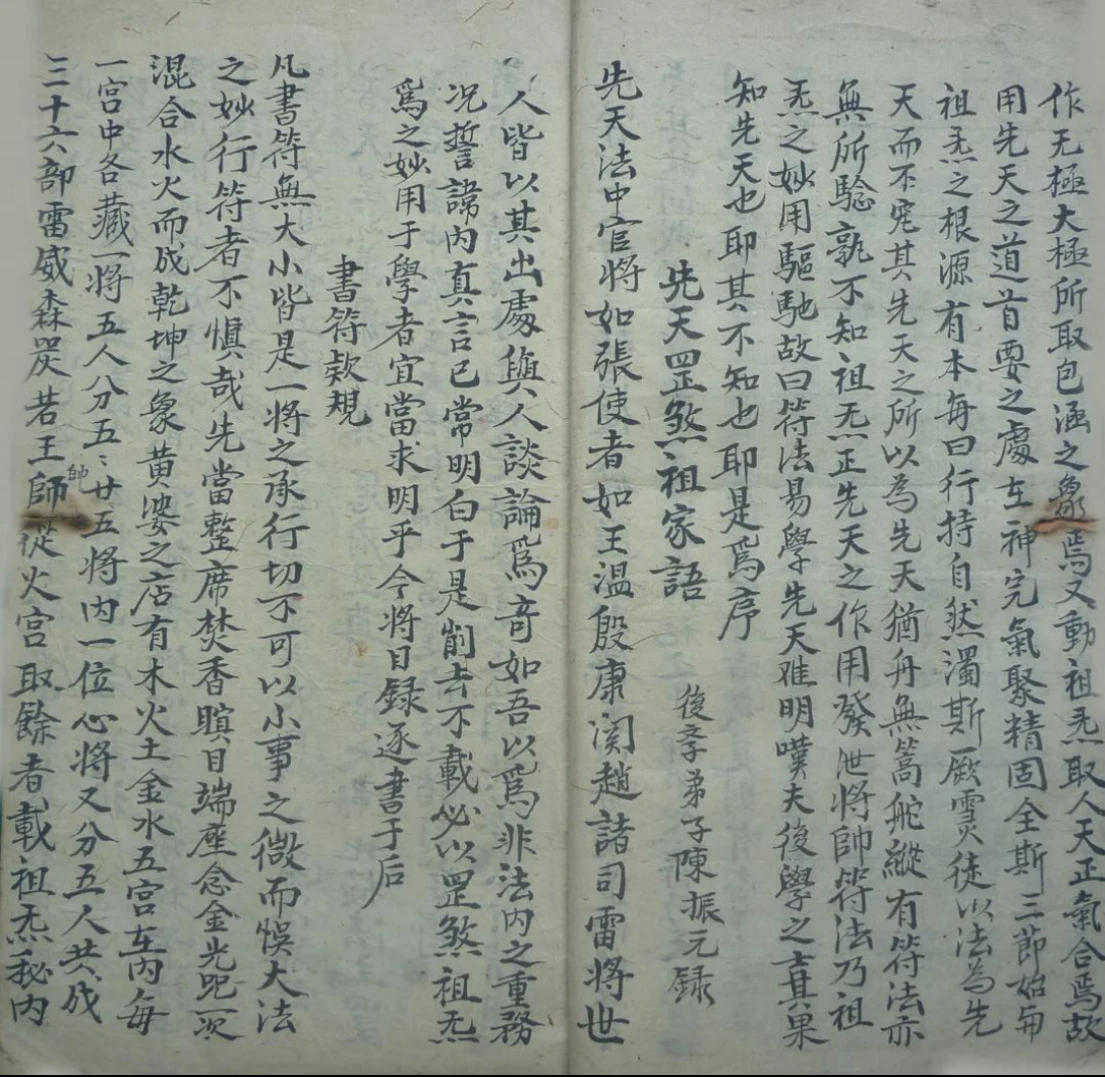 作无極大極所取包涵之象焉又動祖炁取人天正氣合焉故
用先天之道首要之處在神完氣聚精固全斯三節始用
祖炁之根源有本每曰行持自然濁斯厥雪災徒以法為先
天而不究其先天之所以為先天猶舟無篙舵縱有符法亦
無所驗孰不知祖炁正先天之作用發泄將帥符法乃祖
炁之妙用驅馳故曰符法易學先天难明嘆夫後學之士其果
知先天也耶其不知也耶是爲序
後亭弟子陳振元録
先天罡煞祖家語
先天法中官將如張使者如王溫殷康関趙諸司雷將世
人皆以其出處與人談論爲竒如吾以爲非法内之重務
况誓諱内真言已常明白于是削去不載必以罡煞祖炁
爲之妙用于學者宜當求明乎今將目録逐書于后
書符欵規
凡書符無大小皆是一將之承行切不可以小事之微而悞大法
之妙行符者不慎哉先當整席焚香瞑目端座念金光咒一次
混合水火而成乾坤之象黄婆之店有木火土金水五宫在内每
一宫中各藏一將五人分五〻廿五將内一位心將又分五人共成
三十六部雷威森炭若王師帥從火宫取餘者載祖炁秘内